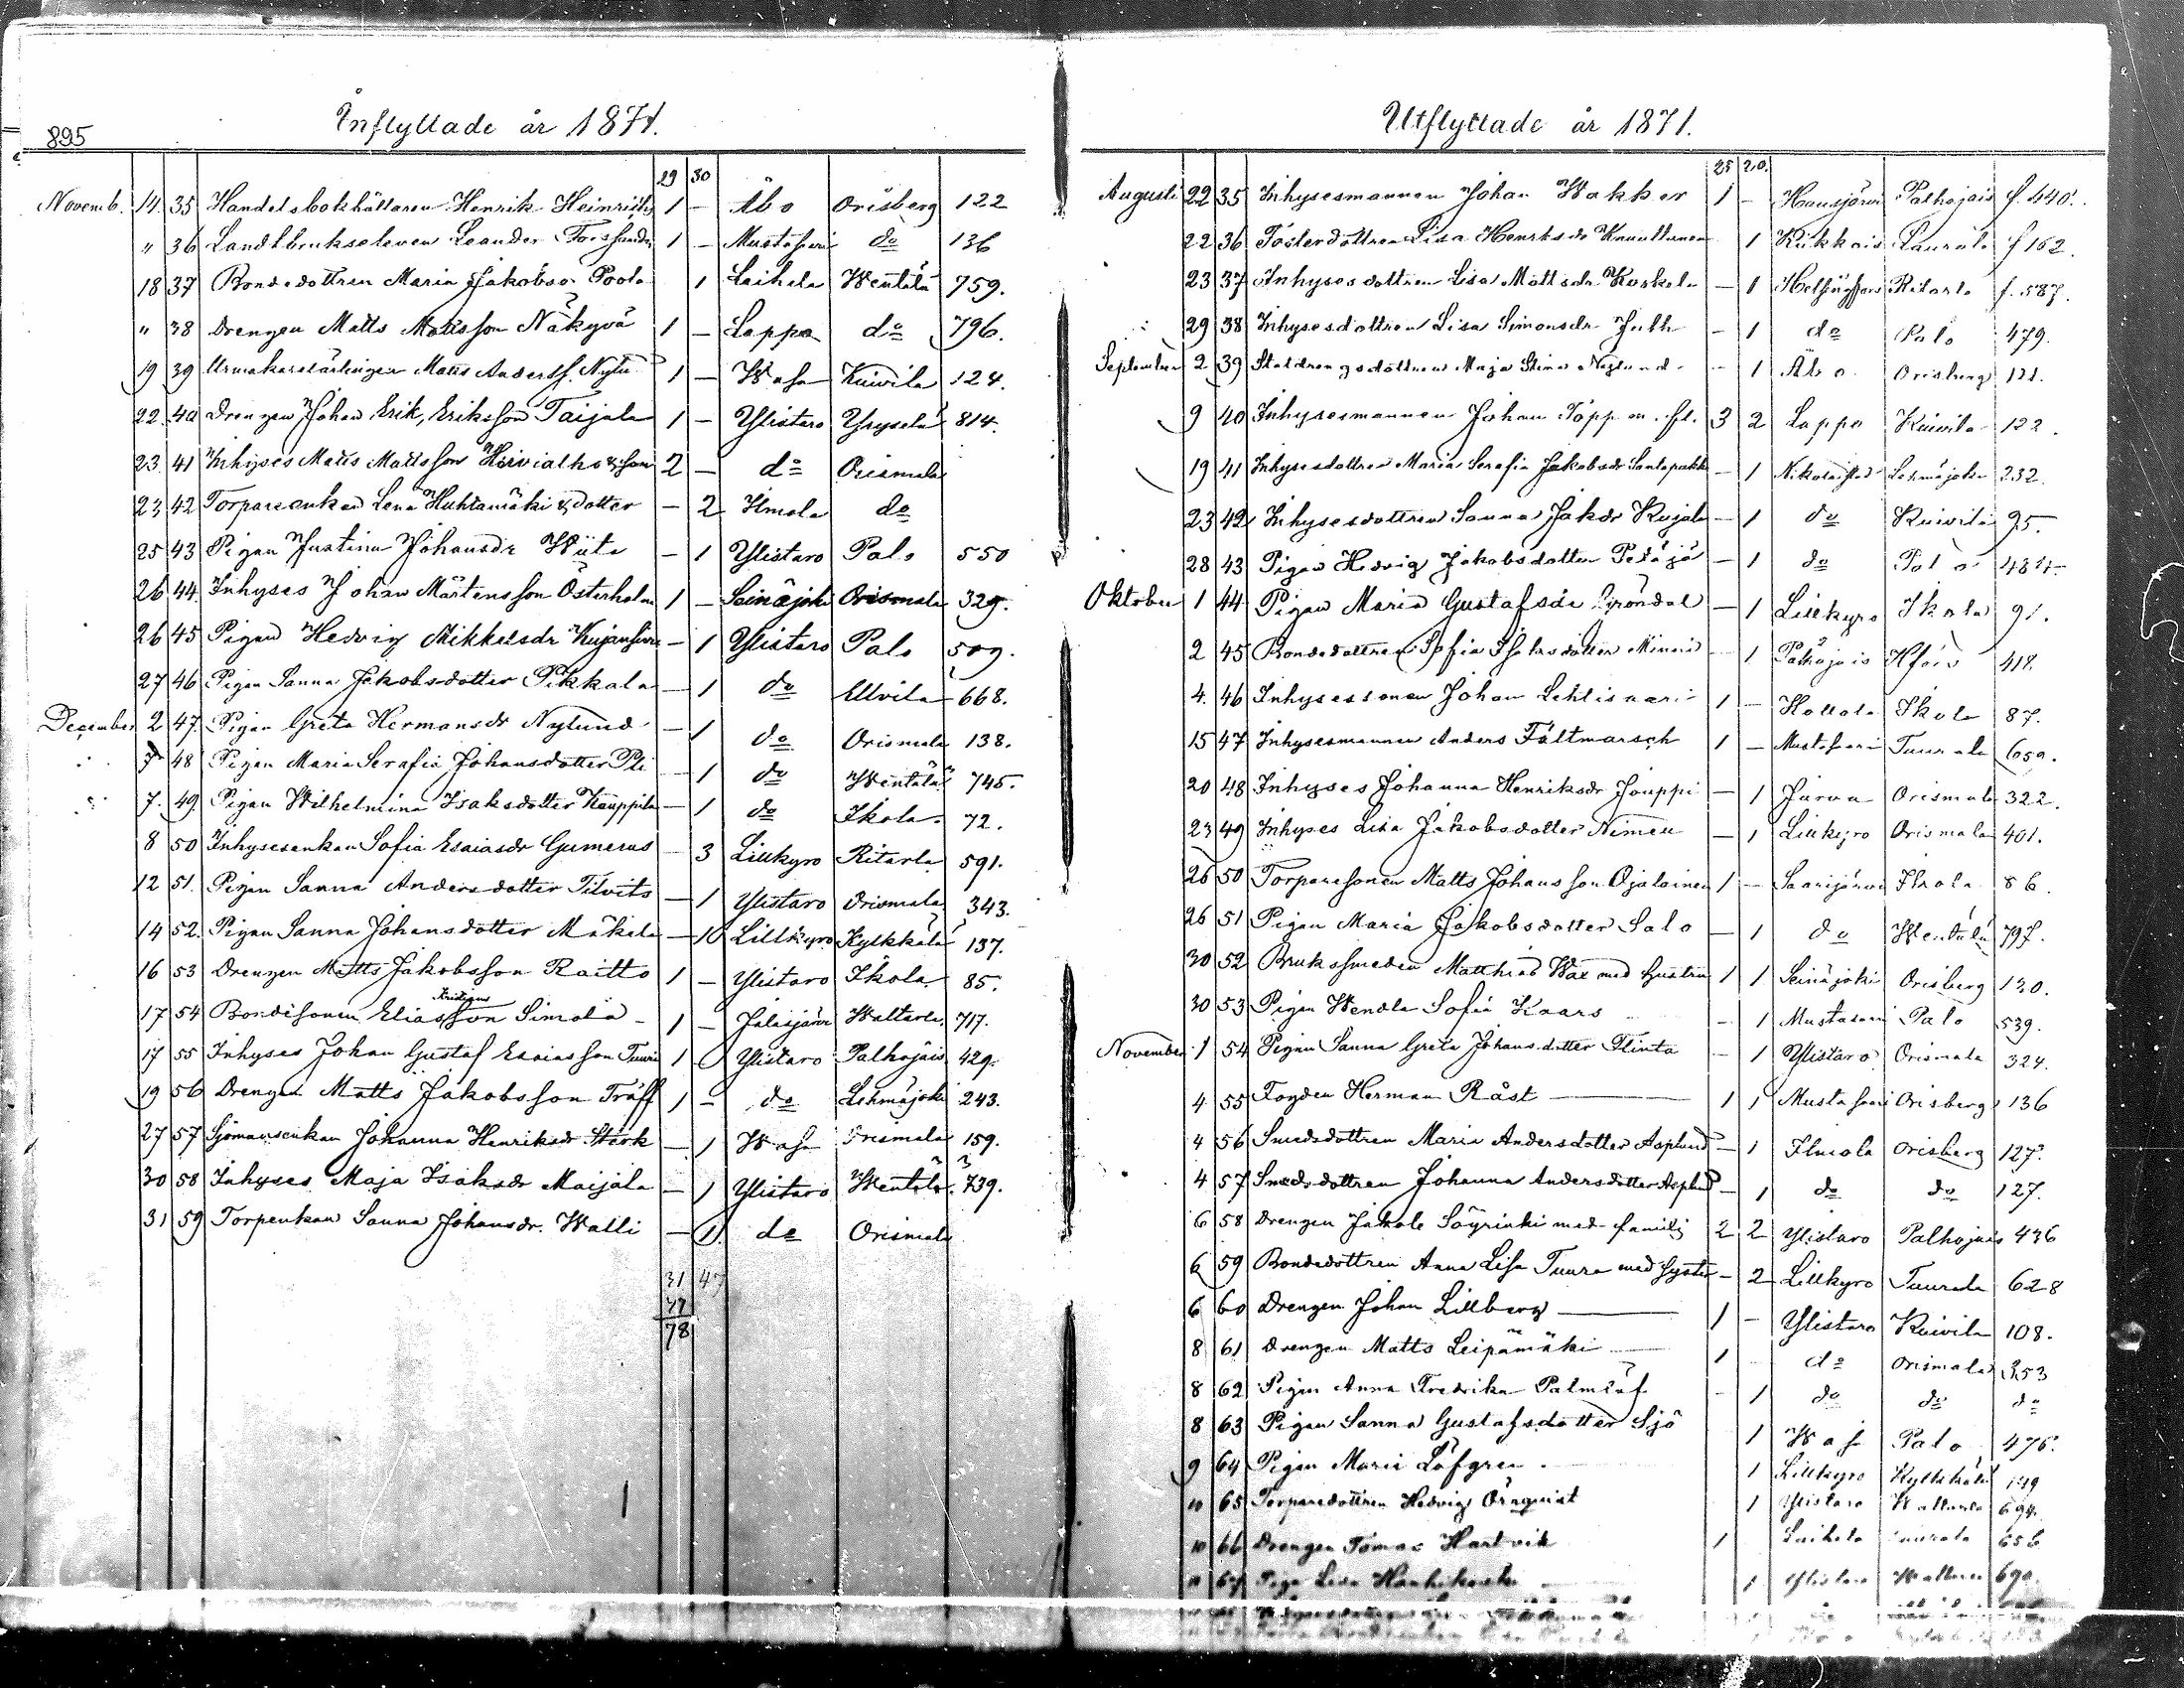 895
Inflyttade år 1871.
29 30
Novemb. 14 35 Handelsbokhållaren Henrik Heinrichs 1 - Åbo Orisberg 122
" 36 Landtbrukseleven Leander Forssander 1 - Mustasaari do 136
18 37 Bondedottren Maria Jakobsdr Poola 1 Laihela Wentälä 759.
" 38 Drengen Matts Mattsson Näkyvä 1 - Lappo do 796.
19 39 Urmakarelärlingen Matts Anderss. 1 - Wasa Kuivila 124.
22 40 Drengen Johan Erik Eriksson Taijala 1 - Ylistaro Yrysela 814.
23 41 Inhyses Matts Mattsson & son 2 - do Orismala
23 42 Torpareenkan Lena Huhtamäki & dotter - 2 Ilmola do
25 43 Pigan Justina Johansdr - 1 Ylistaro Palo 550
26 44 Inhyses Johan Mårtensson Österholm 1 - Seinäjoki Orismala 329.
26 45 Pigan Hedvig Mikkelsdr Kujansivu - 1 Ylistaro Palo 509.
27 46 Pigan Sanna Jakobsdotter Pikkala - 1 do Ulvila 668.
December 2 47 Pigan Greta Hermansdr Nylund - 1 do Orismala 138.
7 48 Pigan Maria Serafia Johansdotter - 1 do Wentälä 745.
7. 49 Pigan Wilhelmina Isaksdotter Kauppila - 1 do Ikola 72.
8 50 Inhysesenkan Sofia Esaiasdr Gumerus - 3 Lillkyro Ritarla 591.
12 51 Pigan Sanna Andersdotter Tilvits - 1 Ylistaro Orismala 343.
14 52 Pigan Sanna Johansdotter Mäkela - 10 Lillkyro Kylkkälä 137.
16 53 Drengen Matts Jakobsson Raitto 1 - Ylistaro Ikola 85.
17 54 Bondesonen Elias son Simola 1 - Jalasjärvi Waltarla 717.
17 55 Inhyses Johan Gustaf Esaiasson Tuuri 1 Ylistaro Palhojais 429.
19 56 Drengen Matts Jakobsson Träff 1 - do Lehmäjoki 243.
27 57 Sjömansenkan Johanna Henriksdr Stark - 1 Wasa Orismala 159.
30 58 Inhyses Maja Isaksdr Maijala - 1 Ylistaro Wentälä 739.
31 59 Torpenkan Sanna Johansdr. Walli - 1 do Orismala
31 47
47
78
Utflyttade år 1871.
25 20.
Augusti 22 35 Inhysesmannen Johan Wakker 1 - Hausjärvi Palhojais f. 440.
22 36 Fosterdottren Lisa Henriksdr Knuuttunen 1 Kiikkais f 162.
23 37 Inhysesdottren Lisa Mattsdr Koskela - 1 Helsingfors Ritarla f. 587.
29 38 Inhysesdottren Lisa Simonsdr - 1 do Palo 479.
September 2 39 Staldrengsdottren Maja Stina Nygund - 1 Åbo Orisberg 121.
9 40 Inhysesmannen Johan Topp m. fl. 3 2 Lappo Kuivila 122.
19 41 Inhysesdottren Maria Serafia Jakobsdr Santapakka - 1 Nikolaistad Lehmäjoki 232.
23 42 Inhysesdottren Sanna Jakdr Kujala - 1 do Kuivila 95.
28 43 Pigan Hedvig Jakobsdotter Petäjä - 1 do Palo 484.
Oktober 1 44 Pigan Maria Gustafsdr Gröndal - 1 Lillkyro Ikola 91.
2 45 Bondedottren Sofia - 1 Palhojais 418.
4. 46 Inhysessonen Johan Lehtisaari 1 - Hollola Ikola 87.
15 47 Inhysesmannen Anders Fältmarsch 1 - Mustasaari Tuurala 659.
20 48 Inhyses Johanna Henriksdr Jouppi - 1 Jurva Orismala 322.
23 49 Inhyses Lisa Jakobsdotter Nimeu - 1 Lillkyro Orismala 401.
26 50 Torparesonen Matts Johansson Ojalainen 1 - Saarijärvi Ikola 86.
26 51 Pigan Maria Jakobsdotter Salo - 1 do Wentälä 797.
30 52 Bruksmeden Matthias Wax med hustru 1 1 Seinäjoki Orisberg 120.
30 53 Pigan Wendla Sofia Kaars - 1 Mustasaari Palo 539.
November 1 54 Pigan Sanna Greta Johansdotter Flinta - 1 Ylistaro Orismala 324.
4 55 Fogden Herman Råst 1 1 Mustasaari Orisberg 136
4 56 Smedsdottren Maria Andersdotter Asplund - 1 Ilmola Orisberg 127.
4 57 Smedsdottren Johanna Andersdotter Asplund - 1 do do 127.
6 58 Drengen Jakob Säyrinki med familj 2 2 Ylistaro Palhojais 436
6 59 Bondedottren Anna Lisa Tuura med syster - 2 Lillkyro Tuurala 628
6 60 Drengen Johan Lillberg 1 - Ylistaro Kuivila 108.
8 61 Drengen Matts Leipämäki 1 do Orismala 353
8 62 Pigan Anna Fredrika Palmlöf - 1 do do do
8 63 Pigan Sanna Gustafsdotter Sjö 1 Wasa Palo 476.
9 64 Pigan Maria Löfgren 1 Lillkyro Kylkkälä 149
10 65 Torparedottren Hedvig Örnqvist 1 Ylistaro Waltarla 694.
10 66 Drengen Tomas Hartvik 1 Laihela Tuurala 656
11 67 Pigan Lisa 1 Ylistaro Waltarla 690.